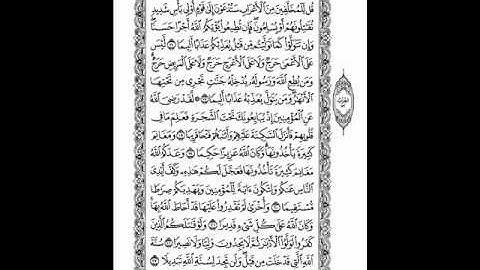 قُل لِّلْمُخَلَّفِينَ مِنَ ٱلْأَعْرَابِ سَتُدْعَوْنَ إِلَىٰ قَوْمٍ أُو۟لِى بَأْسٍ شَدِيدٍ
تُقَـٰتِلُونَهُمْ أَوْ يُسْلِمُونَ ۖ فَإِن تُطِيعُوا۟ يُؤْتِكُمُ ٱللَّهُ أَجْرًا حَسَنًا ۖ
وَإِن تَتَوَلَّوْا۟ كَمَا تَوَلَّيْتُم مِّن قَبْلُ يُعَذِّبْكُمْ عَذَابًا أَلِيمًا ١٦ لَّيْسَ
عَلَى ٱلْأَعْمَىٰ حَرَجٌ وَلَا عَلَى ٱلْأَعْرَجِ حَرَجٌ وَلَا عَلَى ٱلْمَرِيضِ حَرَجٌ ۗ
وَمَن يُطِعِ ٱللَّهَ وَرَسُولَهُۥ يُدْخِلْهُ جَنَّـٰتٍ تَجْرِى مِن تَحْتِهَا
ٱلْأَنْهَـٰرُ ۖ وَمَن يَتَوَلَّ يُعَذِّبْهُ عَذَابًا أَلِيمًا ١٧ ۞ لَّقَدْ رَضِىَ ٱللَّهُ
عَنِ ٱلْمُؤْمِنِينَ إِذْ يُبَايِعُونَكَ تَحْتَ ٱلشَّجَرَةِ فَعَلِمَ مَا فِى
قُلُوبِهِمْ فَأَنزَلَ ٱلسَّكِينَةَ عَلَيْهِمْ وَأَثَـٰبَهُمْ فَتْحًا قَرِيبًا ١٨ وَمَغَانِمَ
كَثِيرَةً يَأْخُذُونَهَا ۗ وَكَانَ ٱللَّهُ عَزِيزًا حَكِيمًا ١٩ وَعَدَكُمُ ٱللَّهُ
مَغَانِمَ كَثِيرَةً تَأْخُذُونَهَا فَعَجَّلَ لَكُمْ هَـٰذِهِۦ وَكَفَّ أَيْدِىَ
ٱلنَّاسِ عَنكُمْ وَلِتَكُونَ ءَايَةً لِّلْمُؤْمِنِينَ وَيَهْدِيَكُمْ صِرَٰطًا
مُّسْتَقِيمًا ٢٠ وَأُخْرَىٰ لَمْ تَقْدِرُوا۟ عَلَيْهَا قَدْ أَحَاطَ ٱللَّهُ بِهَا ۚ
وَكَانَ ٱللَّهُ عَلَىٰ كُلِّ شَىْءٍ قَدِيرًا ٢١ وَلَوْ قَـٰتَلَكُمُ ٱلَّذِينَ
كَفَرُوا۟ لَوَلَّوُا۟ ٱلْأَدْبَـٰرَ ثُمَّ لَا يَجِدُونَ وَلِيًّا وَلَا نَصِيرًا ٢٢ سُنَّةَ
ٱللَّهِ ٱلَّتِى قَدْ خَلَتْ مِن قَبْلُ ۖ وَلَن تَجِدَ لِسُنَّةِ ٱللَّهِ تَبْدِيلًا ٢٣